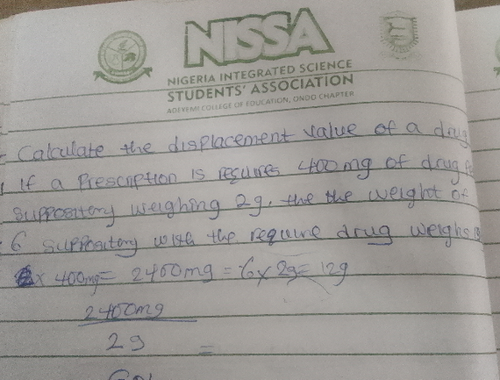 NISSA
NIGERIA INTEGRATED SCIENCE
STUDENTS' ASSOCIATION
ADEYEMI COLLEGE OF EDUCATION, ONDO CHAPTER
Calculate the displacement value of a drug
If a Prescription is requires 400mg of drug
suppository weighing 2g. the the weight of
6 suppository with the require drug weighs
6 x 400mg = 2400mg = 6 x 2g = 12g
2400mg
2g =